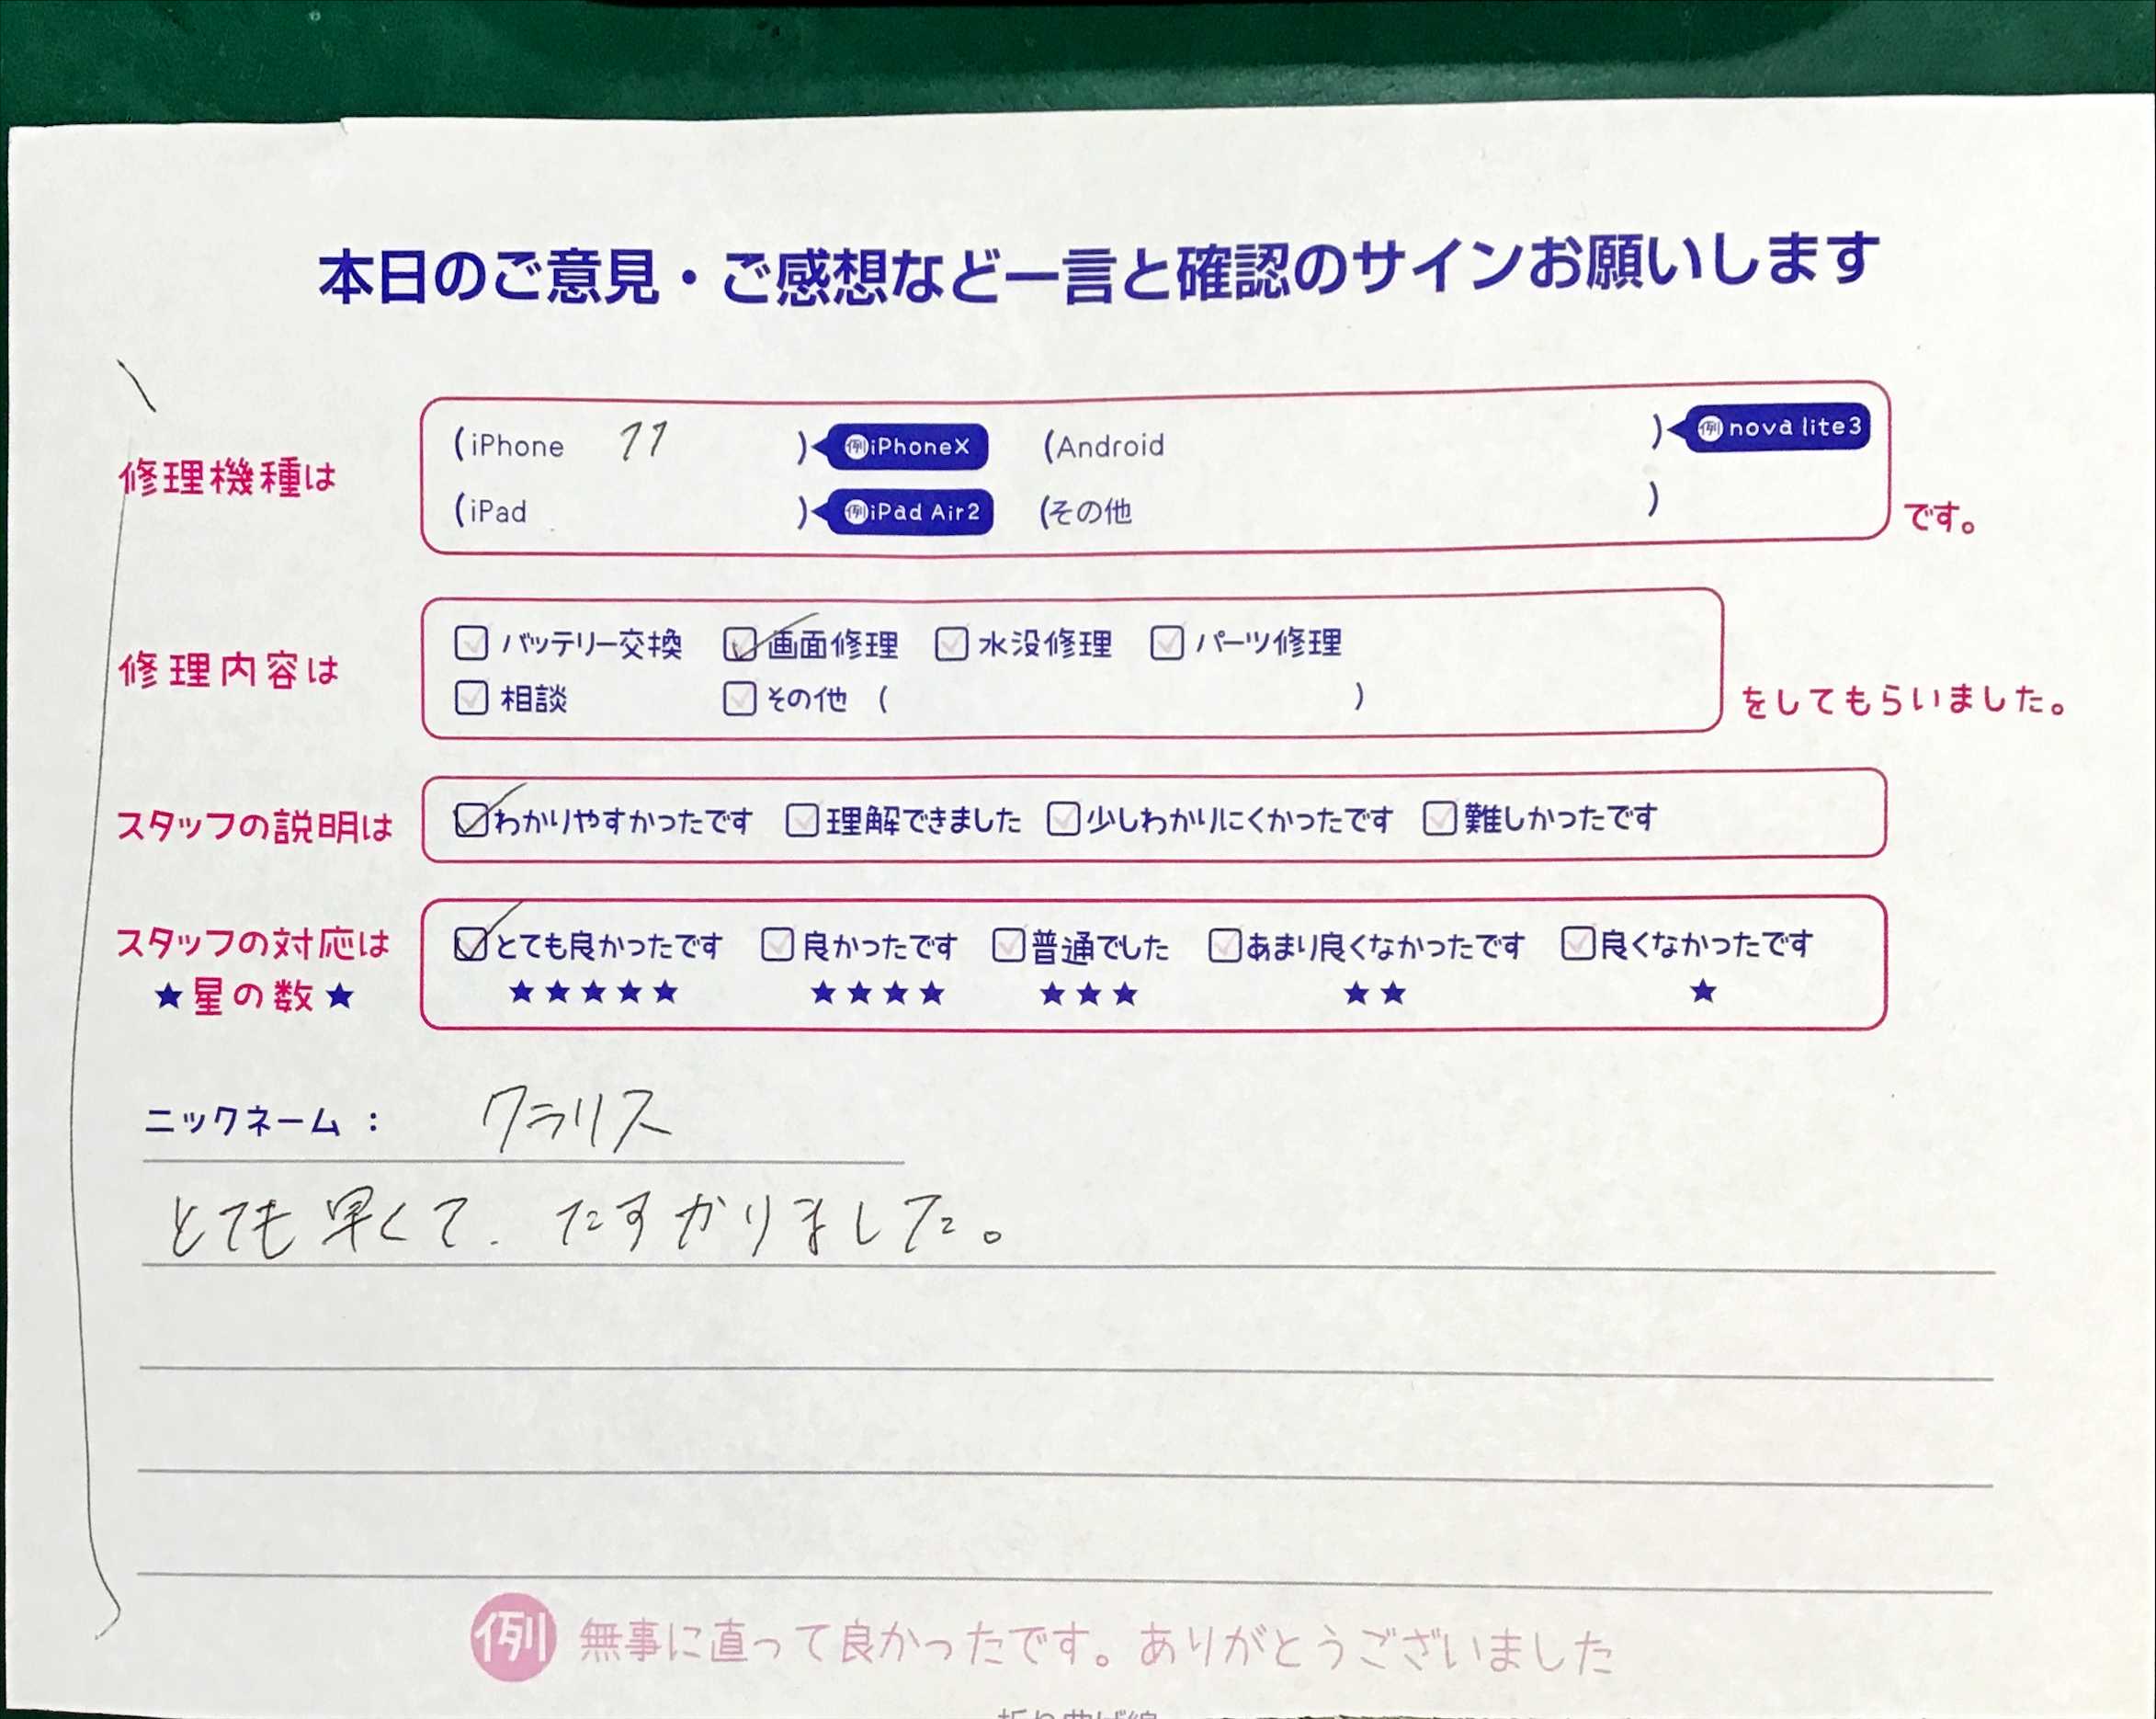 本日のご意見・ご感想など一言と確認のサインお願いします
修理機種は
(iPhone 11 ) 例iPhoneX (Android ) 例nova lite3
(iPad ) 例iPad Air2 (その他 )
です。
修理内容は
バッテリー交換 画面修理 水没修理 パーツ修理
相談 その他 ( )
をしてもらいました。
スタッフの説明は わかりやすかったです 理解できました 少しわかりにくかったです 難しかったです
スタッフの対応は とても良かったです 良かったです 普通でした あまり良くなかったです 良くなかったです
★星の数★ ★★★★★ ★★★★ ★★★ ★★ ★
ニックネーム : クラリス
とても早くて. たすかりました。
例 無事に直って良かったです。ありがとうございました